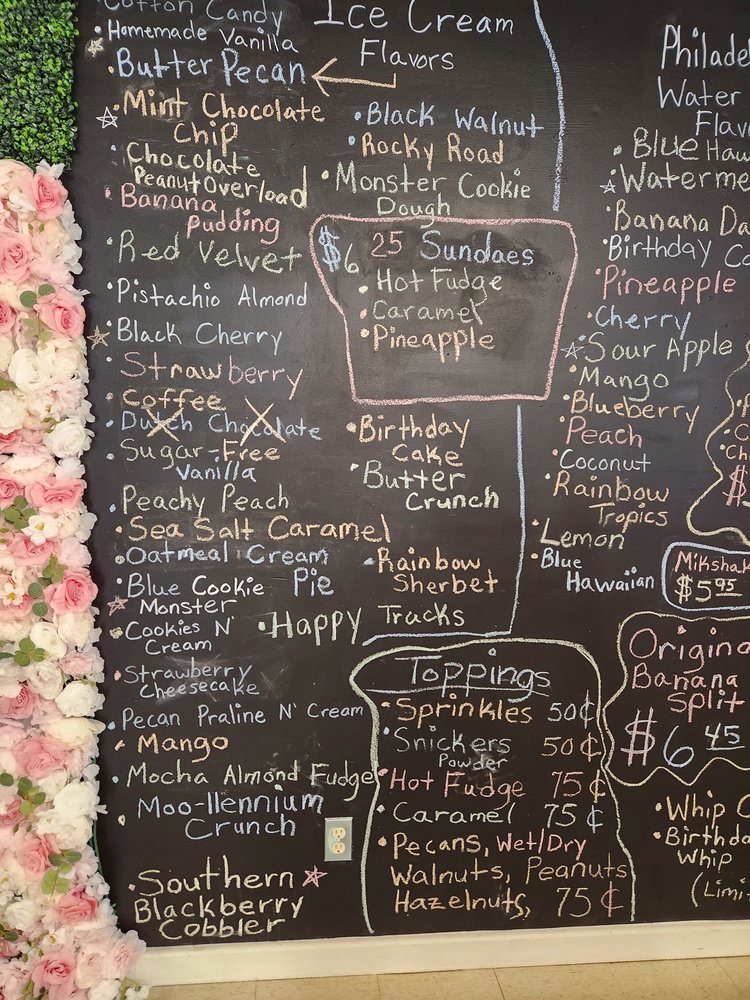 Cotton Candy
Homemade Vanilla
Butter Pecan
Mint Chocolate
Chip
Chocolate
Peanut Overload
Banana
Pudding
Red Velvet
Pistachio Almond
Black Cherry
Strawberry
Coffee
Dutch Chocolate
Sugar-Free
Vanilla
Peachy Peach
Sea Salt Caramel
Oatmeal Cream
Pie
Blue Cookie
Monster
Cookies N'
Cream
Strawberry
Cheesecake
Pecan Praline N' Cream
Mango
Mocha Almond Fudge
Moo-llennium
Crunch
Southern
Blackberry
Cobbler
Ice Cream
Flavors
Black Walnut
Rocky Road
Monster Cookie
Dough
$6 25 Sundaes
Hot Fudge
Caramel
Pineapple
Birthday
Cake
Butter
Crunch
Rainbow
Sherbet
Happy Tracks
Toppings
Sprinkles 50¢
Snickers 50¢
Powder
Hot Fudge 75¢
Caramel 75¢
Pecans, Wet/Dry
Walnuts, Peanuts
Hazelnuts, 75¢
Water
Blue
Banana
Birthday
Pineapple
Cherry
Sour Apple
Mango
Blueberry
Peach
Coconut
Rainbow
Tropics
Lemon
Blue
Hawaiian
$5.95
Banana
Split
$6 45
Whip
Whip